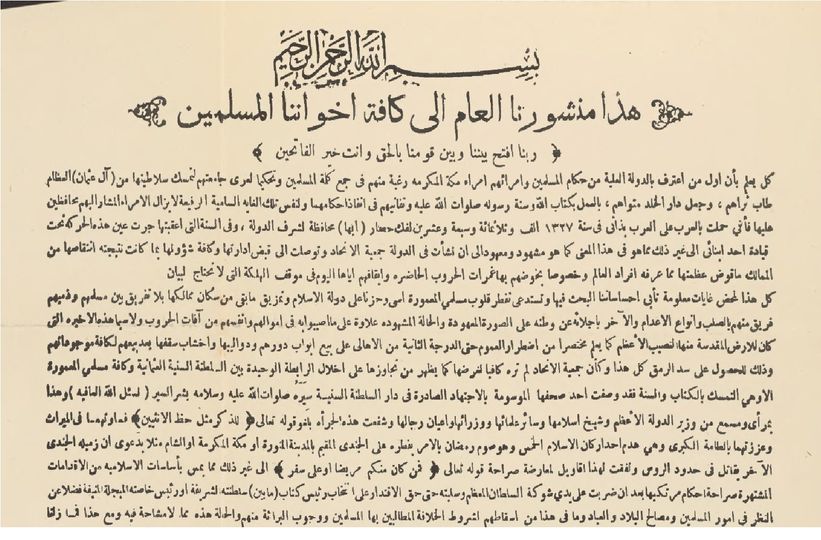 بسم الله الرحمن الرحيم
هذا منشورنا العام الى كافة اخواننا المسلمين
﴿ ربنا افتح بيننا وبين قومنا بالحق وانت خير الفاتحين ﴾
كل يعلم بأن اول من اعترف بالدولة العلية من حكام المسلمين وامرائهم امراء مكة المكرمه رغبة منهم فى جمع كلمة المسلمين وتحكيما لعرى جامعتهم لتمسك سلاطينها من (آل عثمان) العظام
طاب ثراهم ، وجعل دار الخلد مثواهم ، بالعمل بكتاب الله وسنة رسوله صلوات الله عليه وتفانيهم فى انفاذ احكامهما ولنفس تلك الغاية السامية الرفيعة لايزال الامراء المشار اليهم محافظين
عليها فأننى حملت بالعرب على العرب بذاتى فى سنة ١٣٢٧ الف وثلاثمائة وسبعة وعشرين لفك حصار (ابها) محافظة لشرف الدولة ، وفى السنة التى اعقبتها جرت عين هذه الحركة تحت
قيادة احد ابنائى الى غير ذلك مما هو فى هذا المعنى كما هو مشهود ومعهود الى ان نشأت فى الدولة جمعية الاتحاد وتوصلت الى قبض ادارتها وكافة شؤونها بما كانت نتيجته انتقاصها من
الممالك ماقوض عظمتها مما عرفه افراد العالم وخصوصا بخوضهم بها غمرات الحروب الحاضره وايقافهم اياها اليوم فى موقف الهلكة التى لا تحتاج لبيان
كل هذا لمحض غايات معلومة تأبى احساساتنا البحث فيها وتستدعى تفطر قلوب مسلمي المعمورة اسى وحزنا على دولة الاسلام وتمزيق مابقى من سكان ممالكها بلا تفريق بين مسلمهم وذميهم
فريق منهم بالصلب وأنواع الاعدام والآخر باجلائه عن وطنه على الصورة المعهودة والحالة المشهوده علاوة على ما اصيبوا به فى اموالهم وانفسهم من آفات الحروب ولاسيما هذه الاخيره التى
كان للارض المقدسة منها النصيب الأعظم كما يعلم مختصرا من اضطرار العموم حتى الدرجة الثانية من الاهالى على بيع ابواب دورهم ودواليبها واخشاب سقفها بعد بيعهم لكافة موجوداتهم
وذلك للحصول على سد الرمق كل هذا وكأن جمعية الاتحاد لم تره كافيا لغرضها كما يظهر من تجاوزها على اخلال الرابطة الوحيدة بين السلطنة السنية العثمانية وكافة مسلمي المعمورة
الا وهى التمسك بالكتاب والسنة فقد وصفت احد صحفها الموسومة بالاجتهاد الصادرة فى دار السلطنة السنيه سيره صلوات الله عليه وسلامه بشر السير (نسئل الله العافيه) وهذا
بمرأى ومسمع من وزير الدولة الأعظم وشيخ اسلامها وسائر علمائها ووزرائها واعيان رجالها وشفعت هذه الجرأه بلغو قوله تعالى ﴿ للذكر مثل حظ الانثيين ﴾ فساوتهما فى الميراث
وعززتهما بالطامة الكبرى وهى هدم احد اركان الاسلام الخمس وهو صوم رمضان بالامر بفطره على الجندى المقيم بالمدينة المنورة او مكة المكرمة او الشام مثلا بدعوى ان زميله الجندى
الآخر يقاتل فى حدود الروس ولفقت لهذا اقاويل لمعارضة صراحة قوله تعالى ﴿ فمن كان منكم مريضا او على سفر ﴾ الى غير ذلك مما يمس بأساسات الاسلاميه من الاقدامات
المشتهرة صراحة احكام مرتكبها بعد ان ضربت على يدي شوكة السلطان المعظم وسلبته حتى حق الاقتدار على انتخاب رئيس كتاب (مابين) سلطنته الشريفة او رئيس خاصته المبجلة المنيفة فضلا عن
النظر فى امور المسلمين ومصالح البلاد والعباد وما فى هذا من اسقاطهم لشروط الخلافة المطالبين بها المسلمين ووجوب البرائة منهم والحالة هذه مما لا مشاحة فيه ومع هذا فما زلنا